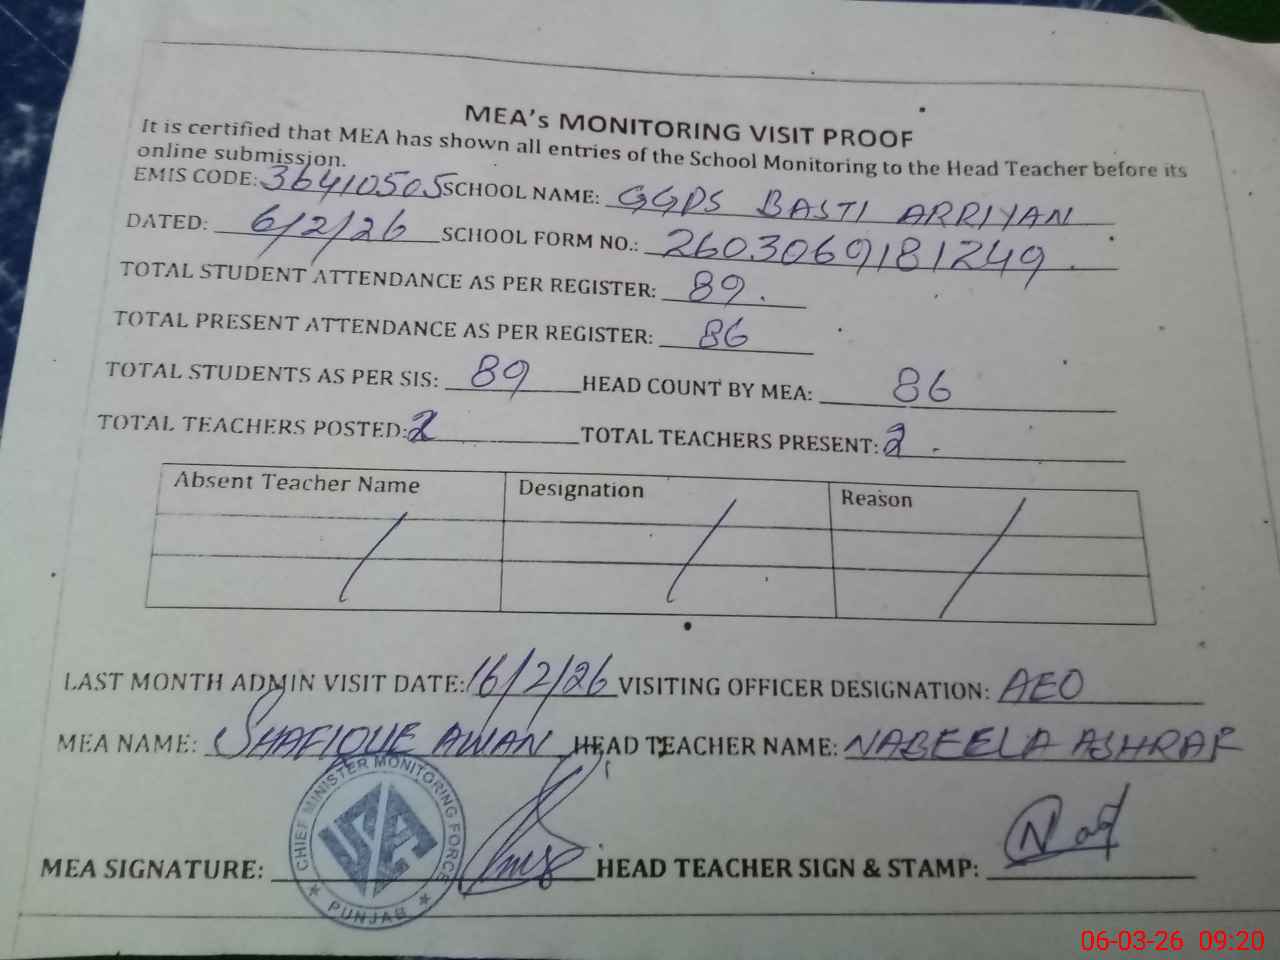 MEA's MONITORING VISIT PROOF
It is certified that MEA has shown all entries of the School Monitoring to the Head Teacher before its
online submission.
EMIS CODE: 36410505 SCHOOL NAME: GGPS BASTI ARRIYAN
DATED: 6/2/26 SCHOOL FORM NO.: 2603069181249
TOTAL STUDENT ATTENDANCE AS PER REGISTER: 89.
TOTAL PRESENT ATTENDANCE AS PER REGISTER: 86
TOTAL STUDENTS AS PER SIS: 89 HEAD COUNT BY MEA: 86
TOTAL TEACHERS POSTED: 2 TOTAL TEACHERS PRESENT: 2.
Absent Teacher Name Designation Reason
LAST MONTH ADMIN VISIT DATE: 16/2/26 VISITING OFFICER DESIGNATION: AEO
MEA NAME: SHAFIQUE AWAN HEAD TEACHER NAME: NABEELA ASHRAF
CHIEF MINISTER MONITORING FORCE
PUNJAB
MEA SIGNATURE: HEAD TEACHER SIGN & STAMP:
06-03-26 09:20